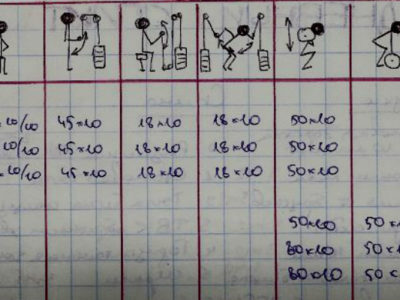 10/10 45×10 18×10 18×10 50×10
10/10 45×10 18×10 18×10 50×10
10/10 45×10 18×10 18×10 50×10
50×10 50×
80×10 50×
80×10 50×